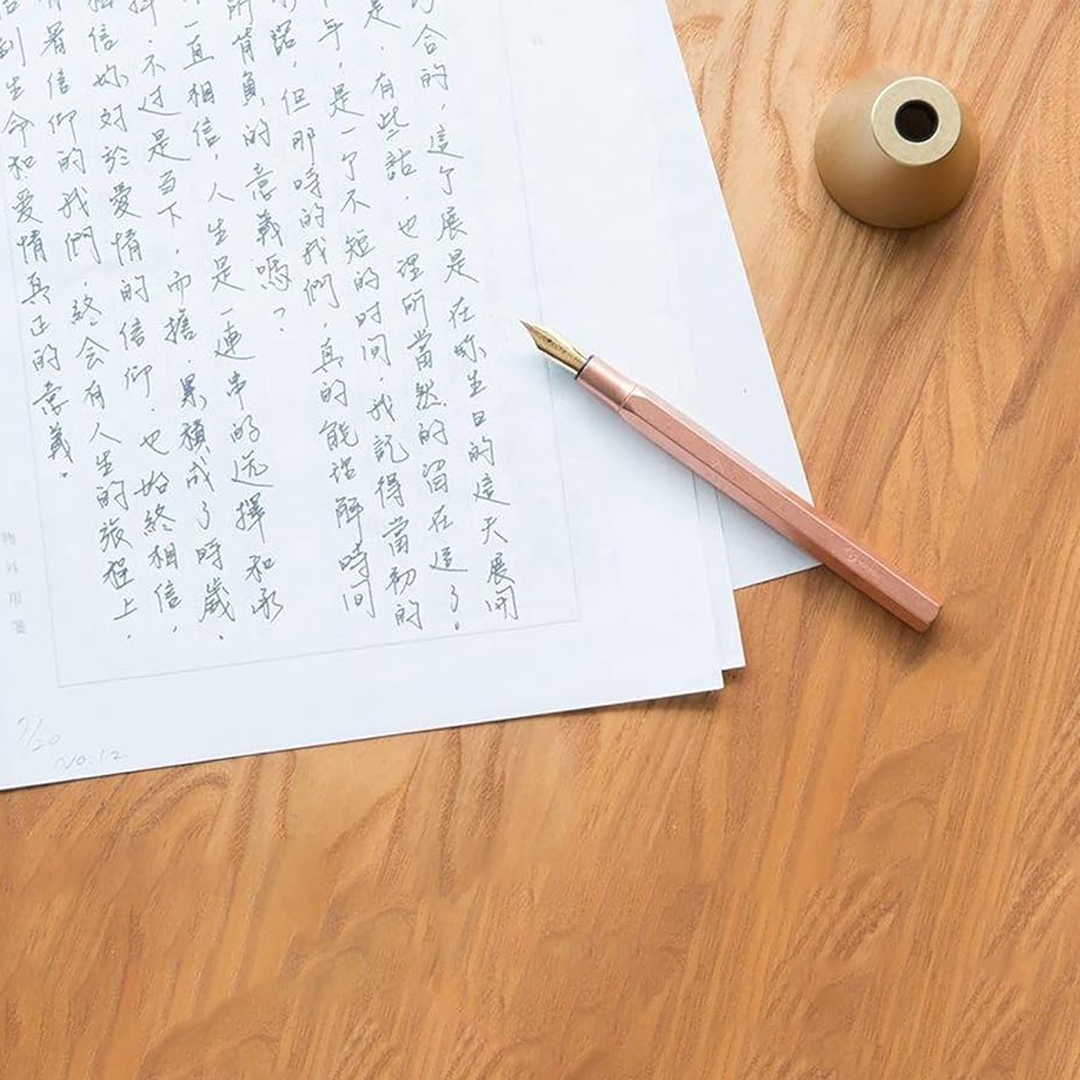 合的，這个展是在妳生日的這天展開
是，有些話，也理所當然的留在這了。
年，是一个不短的时间，我記得當初的
諾，但那時的我們，真的能諒解時間
所肯負的意義嗎？
一直相信，人生是一連串的选擇和承
不过是当下，而擔，累積成了時歲，
相信妳对於愛情的信仰，也始終相信，
有着信仰的我們，終会有人生的旅程上，
到生命和爱情真正的意義。
物外用箋
7/20
NO.12